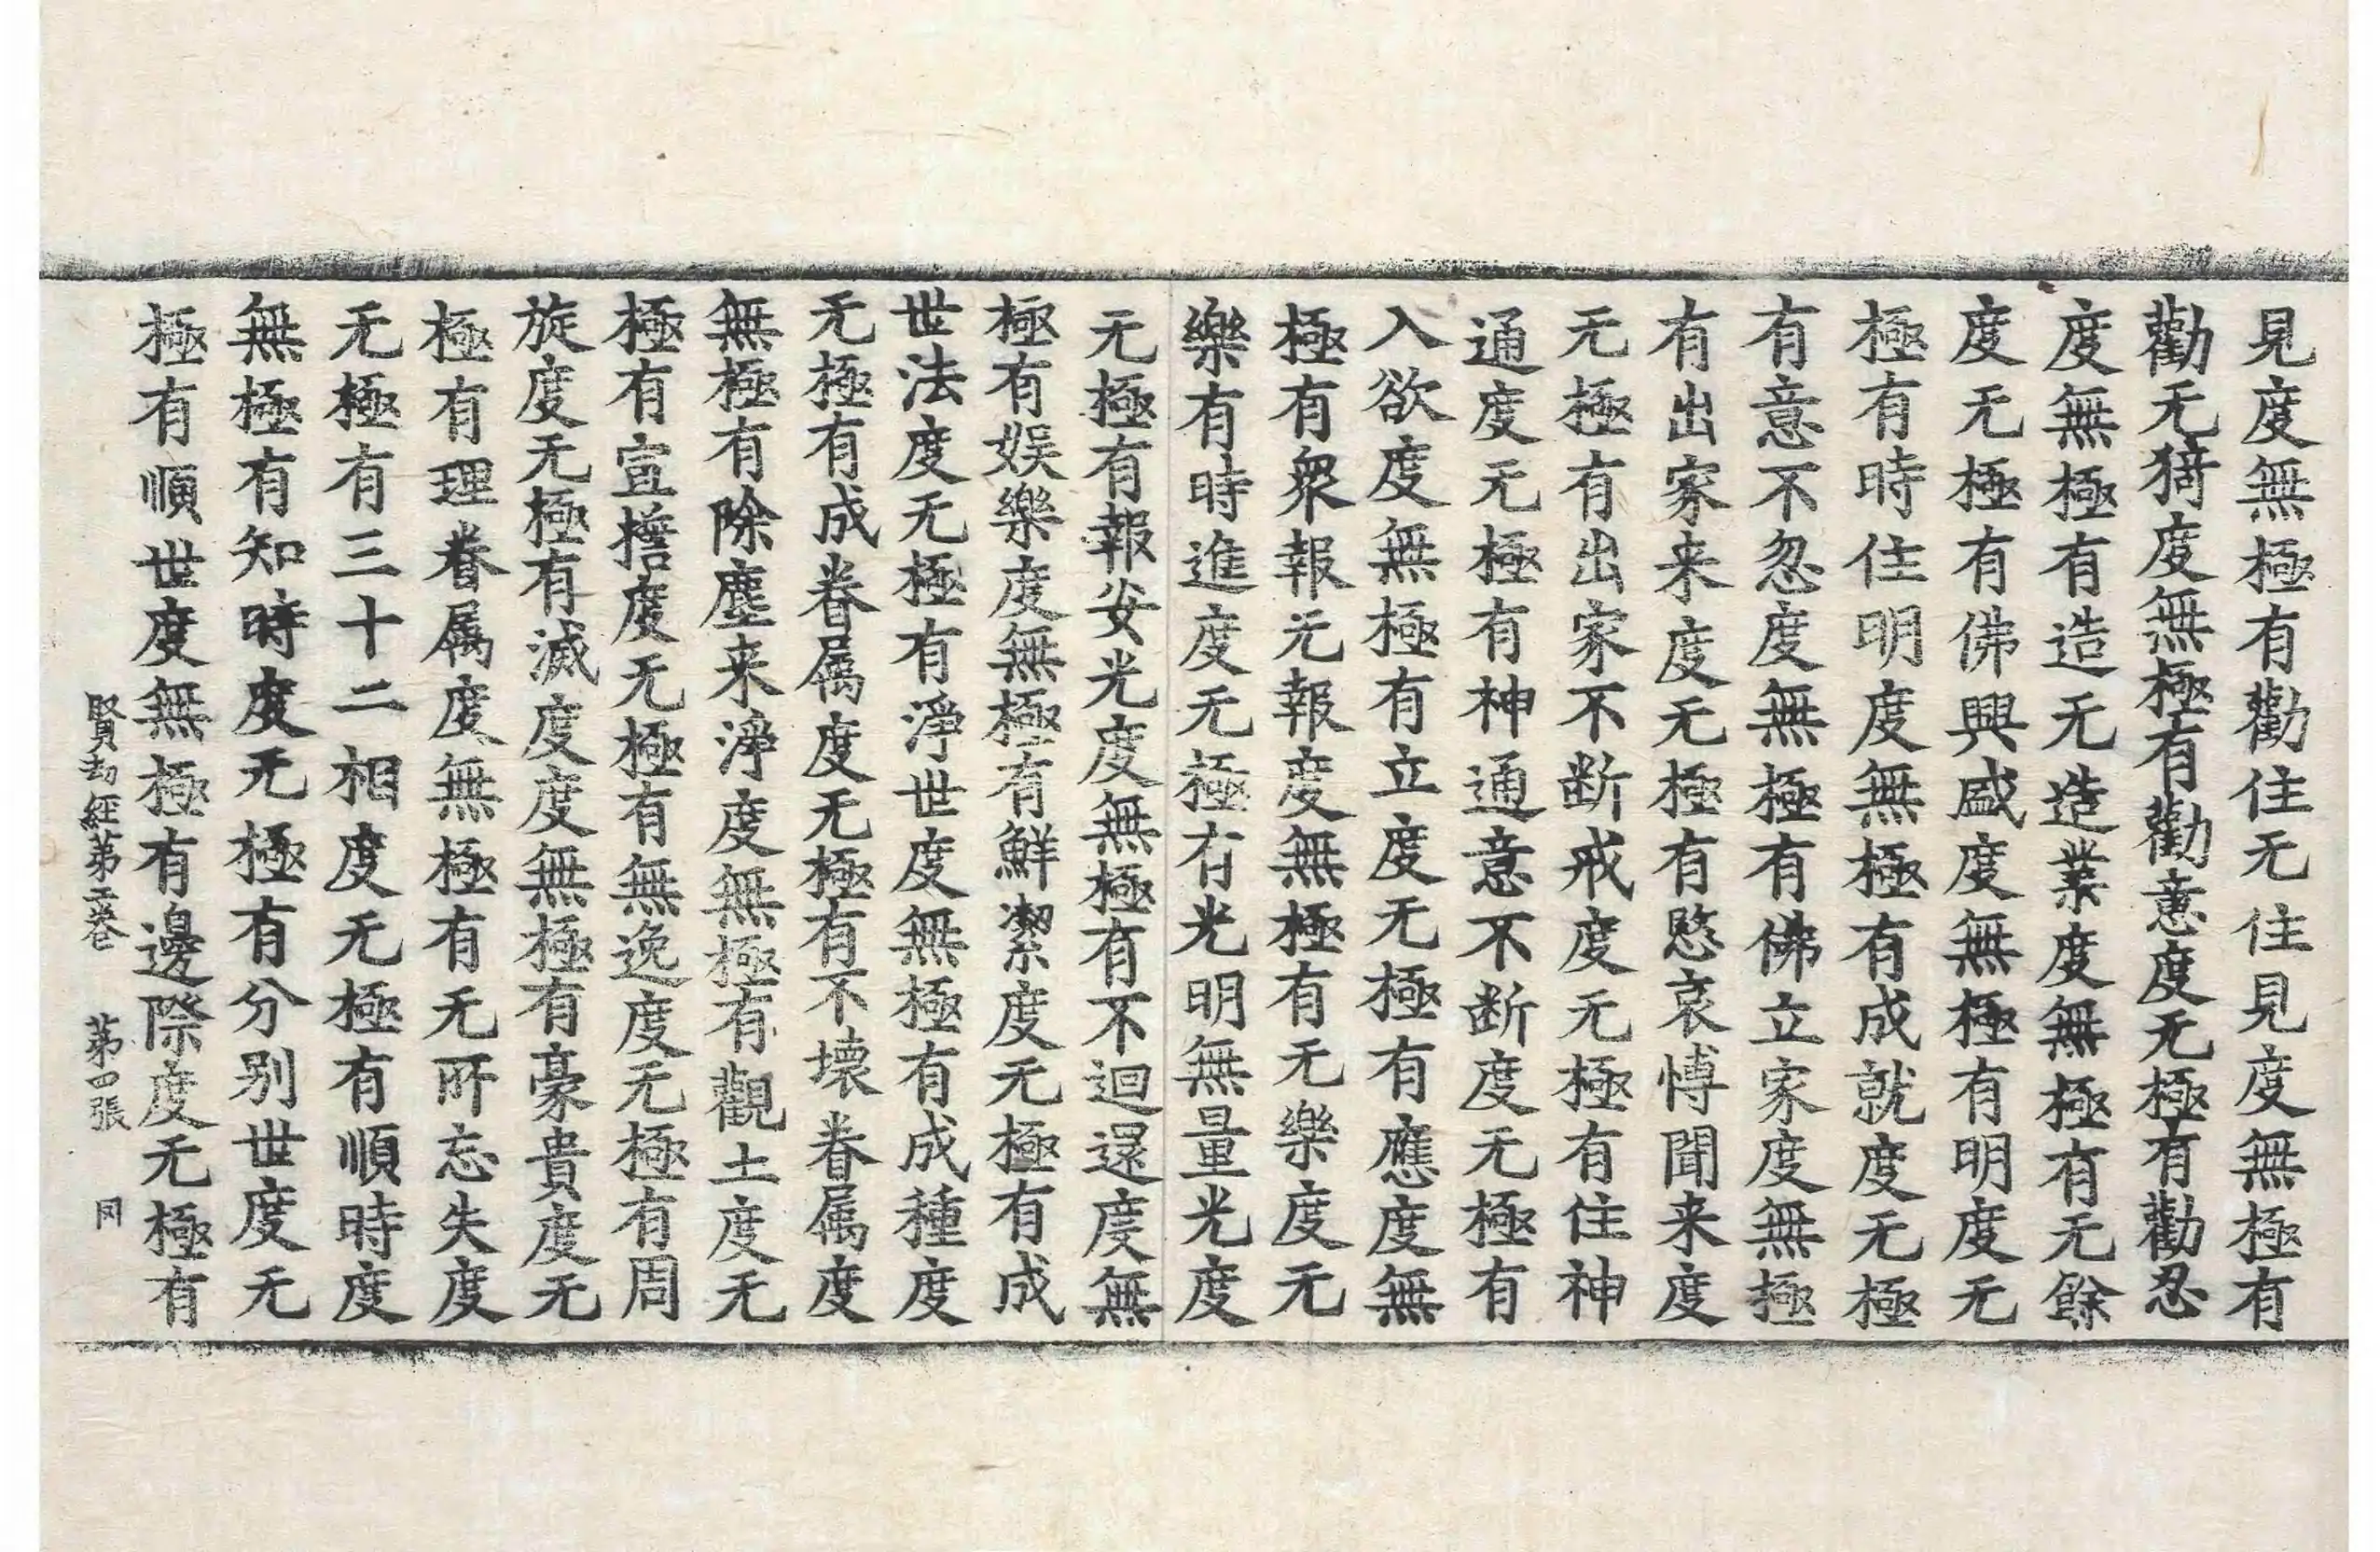 見度無極有勸住无住見度無極有
勸无猗度無極有勸意度无極有勸忍
度無極有造无造業度無極有无餘
度无極有佛興盛度無極有明度无
極有時住明度無極有成就度无極
有意不忽度無極有佛立家度無極
有出家来度无極有愍哀慱聞来度
无極有出家不断戒度无極有住神
通度无極有神通意不断度无極有
入欲度無極有立度无極有應度無
極有衆報无報度無極有无樂度无
樂有時進度无極有光明無量光度
无極有報安光度無極有不迴還度無
極有娛樂度無極有鮮潔度无極有成
世法度无極有淨世度無極有成種度
无極有成眷属度无極有不壊眷属度
無極有除塵来淨度無極有觀土度无
極有宣擔度无極有無逸度无極有周
旋度无極有滅度度無極有豪貴度无
極有理眷属度無極有无所忘失度
无極有三十二相度无極有順時度
無極有知時度无極有分别世度无
極有順世度無極有邊際度无極有
賢劫經第二卷 第四張 冈